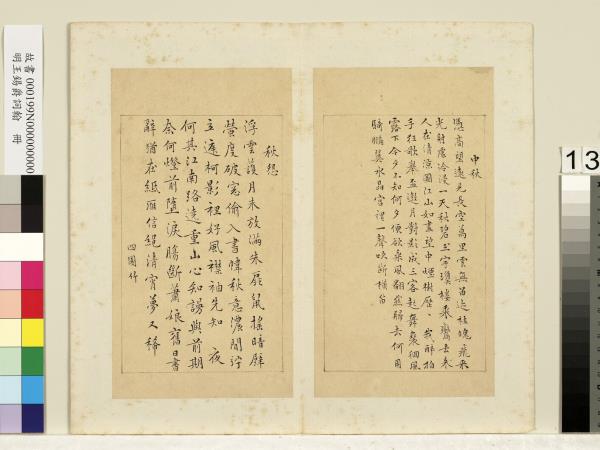 中秋
憑高望遠見長空萬里雲無留迹桂魄飛來
光射處冷浸一天秋碧玉宇瓊樓乘鸞去來
人在清涼國江山如畫望中煙樹歷〻 我醉拍
手狂歌舉盃邀月對影成三客起舞裵徊風
露下今夕不知何夕便欲乘風翻然歸去何用
騎鵬翼水晶宮裡一聲吹斷橫笛
秋怨
浮雲護月未放滿朱扉鼠搖暗壁
螢度破窓偷入書幃秋意濃閒佇
立庭柯影裡好風襟袖先知 夜
何其江南路遶重山心知謾與前期
奈何燈前墮淚腸斷蕭娘舊日書
辭猶在紙雁信絕清宵夢又稀
四園竹
故書 000199N000000000
冊
13